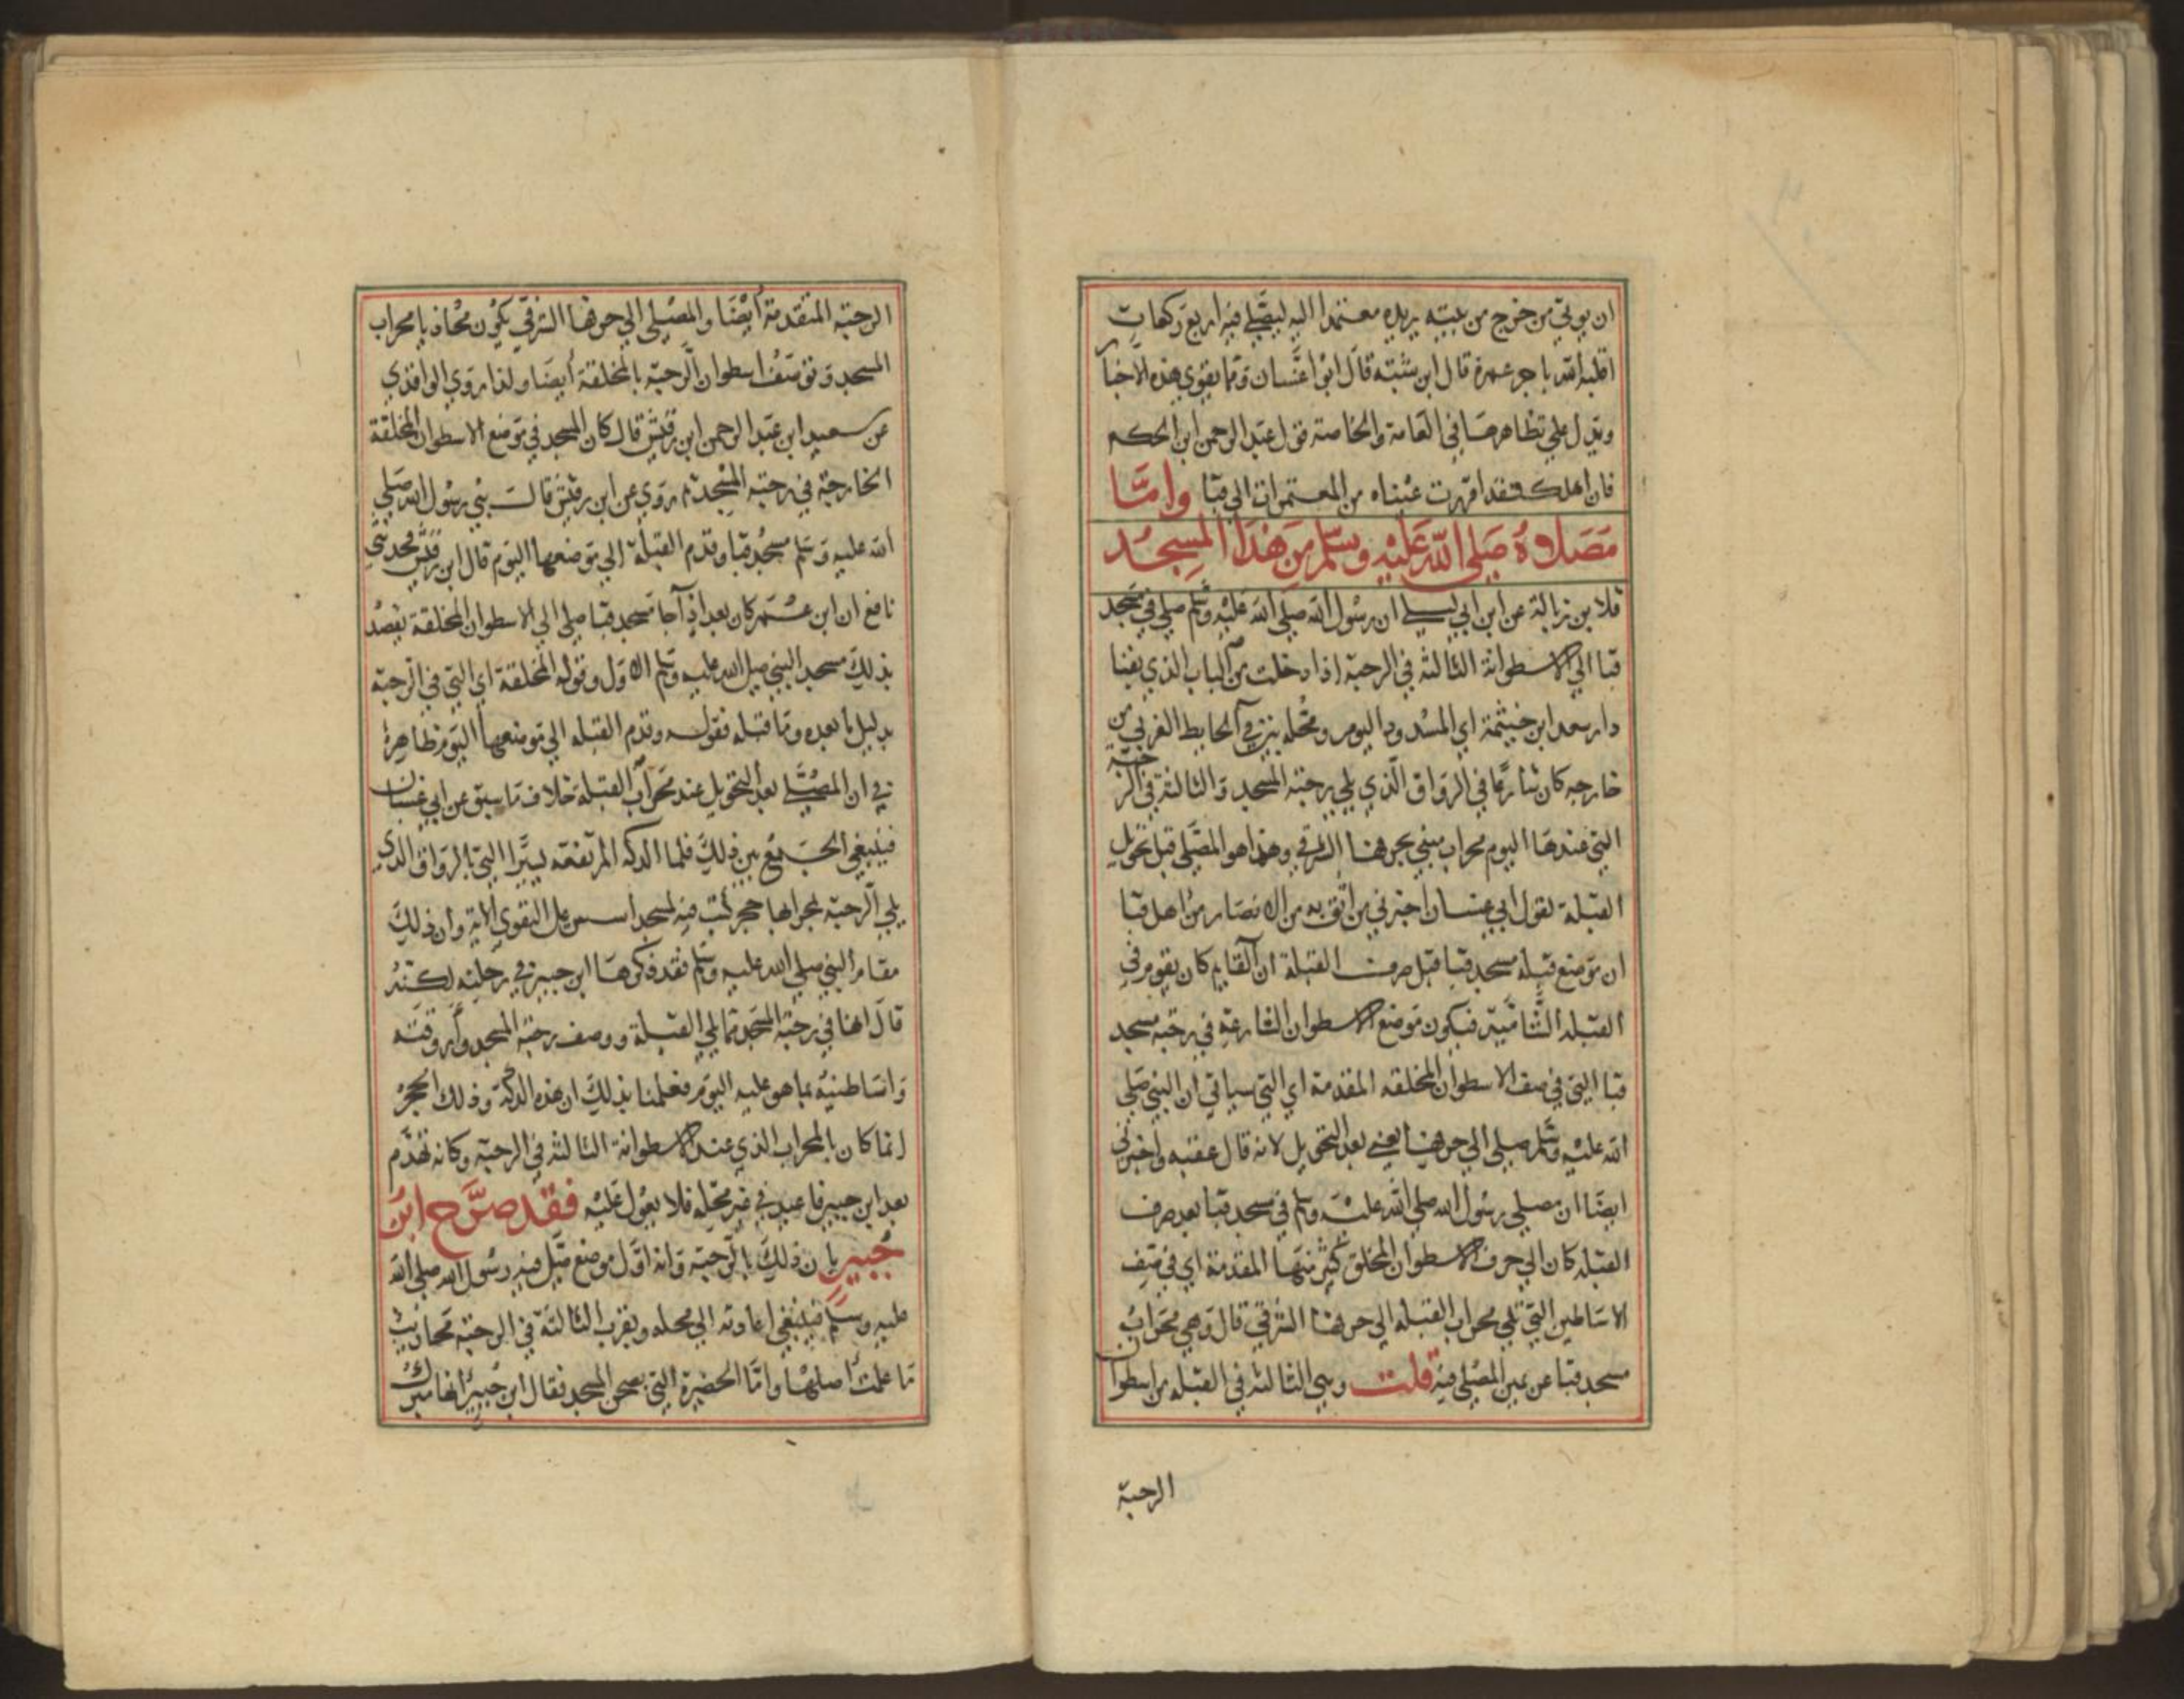 ان يوتي من خرج من بيته يريده معتمدا اليه ليصلي فيه اربع ركعات
اقلبه الله باجر عمرة قال ابن شبة قال ابو غسان ومما يقوي هذه الاخبار
ويدل علي تظاهرها في العامة والخاصة قول عبد الرحمن ابن الحكم
فان اهلك فقد اقررت عينا من المعتمرات الي قبا واما
مصلاه صلي الله عليه وسلم من هذا المسجد
فلابن زبالة عن ابن ابي ليلي ان رسول الله صلي الله عليه وسلم صلي في مسجد
قبا الي الاسطوانة الثالثة في الرحبة اذا دخلت من الباب الذي بفنا
دار سعد ابن خيثمة اي المسدود اليوم ومحله بين في الحايط الغربي من
خارجه كان شارعا في الرواق الذي يلي رحبة المسجد والثالثة في الرحبة
التي عندها اليوم محراب مبني بحرفها الشرقي وهذا هو المصلي قبل تحويل
القبلة لقول ابي غسان اخبرني من اثق به من الانصار من اهل قبا
ان موضع قبلة مسجد قبا قبل صرف القبلة ان القايم كان يقوم في
القبلة الشامية فيكون موضع الاسطوان الشارعة في رحبة مسجد
قبا التي في صف الاسطوان المخلقه المقدمة اي التي سياتي ان النبي صلي
الله عليه وسلم صلي الي حرفها يعني بعد التحويل لانه قال عقبه واخبرني
ايضا ان مصلي رسول الله صلي الله عليه وسلم في مسجد قبا بعد صرف
القبلة كان الي حرف الاسطوان المخلق كثير منها المقدمة اي في صف
الاساطين التي تلي محراب القبلة الي حرفها الشرقي قال وهي محراب
مسجد قبا عن يمين المصلي فيه قلت وهي الثالثة في القبلة من اسطوان
الرحبة
الرحبة المتقدمة ايضا والمصلي الي حرفها الشرقي يكون محاذيا محراب
المسجد وتوصف اسطوان الرحبة بالمخلقة ايضا ولذا روي الواقدي
عن سعيد ابن عبد الرحمن ابن رقيش قال كان المسجد في موضع الاسطوان المخلقة
الخارجة في رحبة المسجد ثم روي عن ابن رقيش قال بني رسول الله صلي
الله عليه وسلم مسجد قبا وقدم القبلة الي موضعها اليوم قال ابن رقيش فحدثني
نافع ان ابن عمر كان بعد اذا جا مسجد قبا صلي الي الاسطوان المخلقة يقصد
بذلك مسجد النبي صلي الله عليه وسلم الاول وقوله المخلقة اي التي في الرحبة
بدليل ما بعده وما قبله فقوله وقدم القبله الي موضعها اليوم ظاهره
في ان المصلي بعد التحويل عند محراب القبلة خلاف ما سبق عن ابي غسان
فينبغي الجمع بين ذلك فلما الدكه المرتفعه يسيرا التي بالرواق الذي
يلي الرحبة بمحرابها حجر كتب فيه لمسجد اسس علي التقوي الاية وان ذلك
مقام النبي صلي الله عليه وسلم فقد ذكرها ابن جبير في رحلته لكنه
قال انها في رحبة المسجد مما يلي القبلة ووصف رحبة المسجد واروقته
واساطينه بما هو عليه اليوم فعلمنا بذلك ان هذه الدكة وذلك الحجر
انما كان بالمحراب الذي عند الاسطوانة الثالثة في الرحبة وكانه تهدم
بعد ابن جبير فاعيد في غير محله فلا يعول عليه فقد صرح ابن
جبير بان ذلك بالرحبة وانه اول موضع صلي فيه رسول الله صلي الله
عليه وسلم فينبغي اعادته الي محله وبقرب الثالثة في الرحبة محاريب
ما علمت اصلها واما الحضيرة التي بصحن المسجد فقال ابن جبير انها مبرك